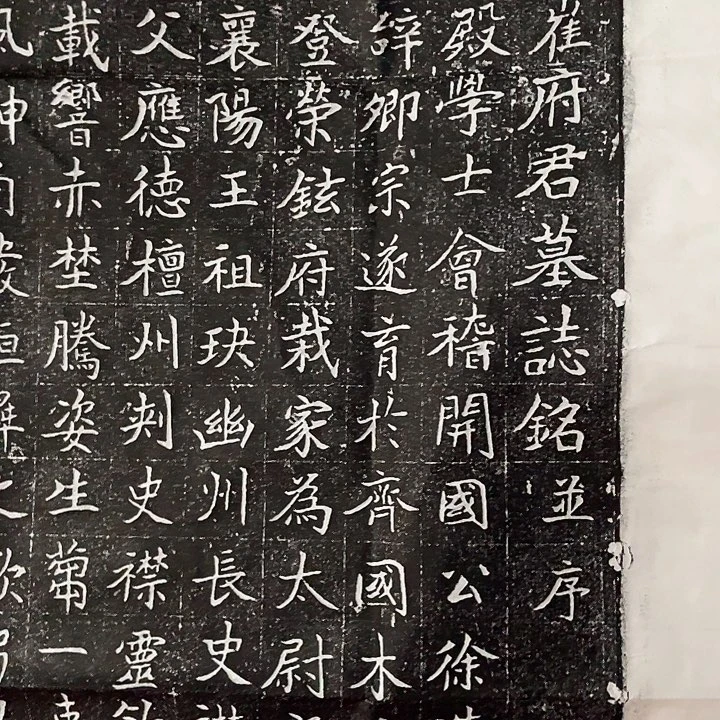 崔府君墓誌銘並序
殿學士會稽開國公徐
辭卿宗遂育於齊國木
登榮鉉府栽家為太尉
襄陽王祖玦幽州長史
父應德檀州刾史襟靈
載響赤埜騰姿生蕚一
風神